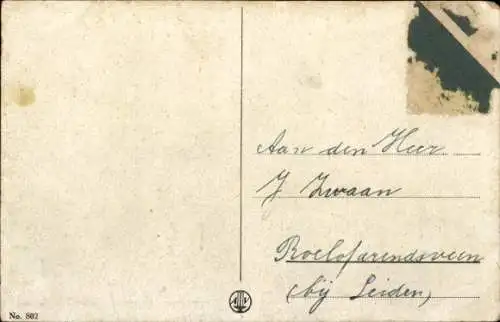 Aan den Heer
J. Zwaan
Roelofarendsveen
(bij Leiden)
No. 802